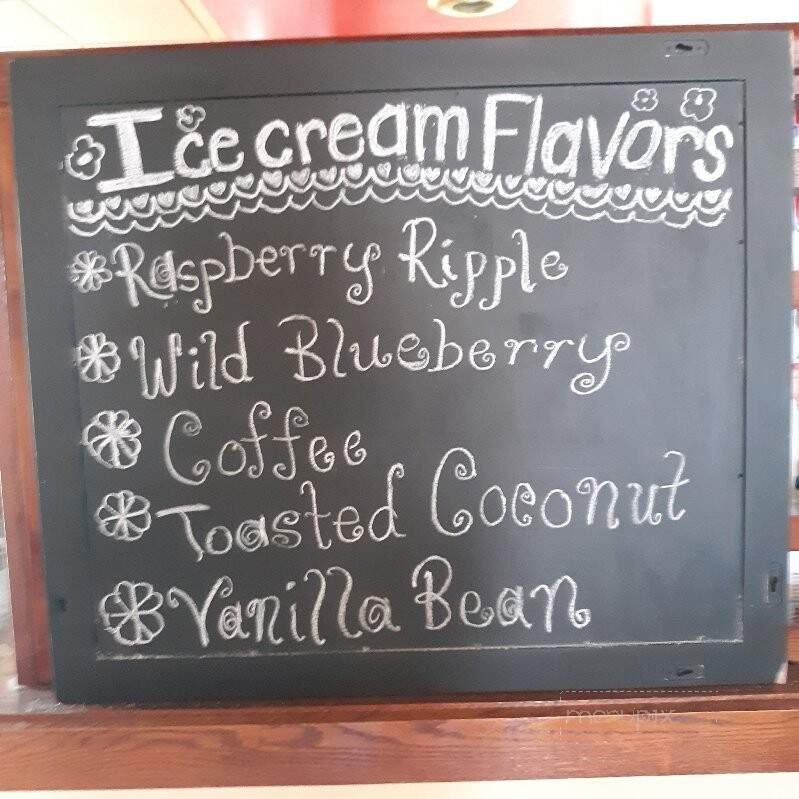 Ice cream Flavors
Raspberry Ripple
Wild Blueberry
Coffee
Toasted Coconut
Vanilla Bean
menupix